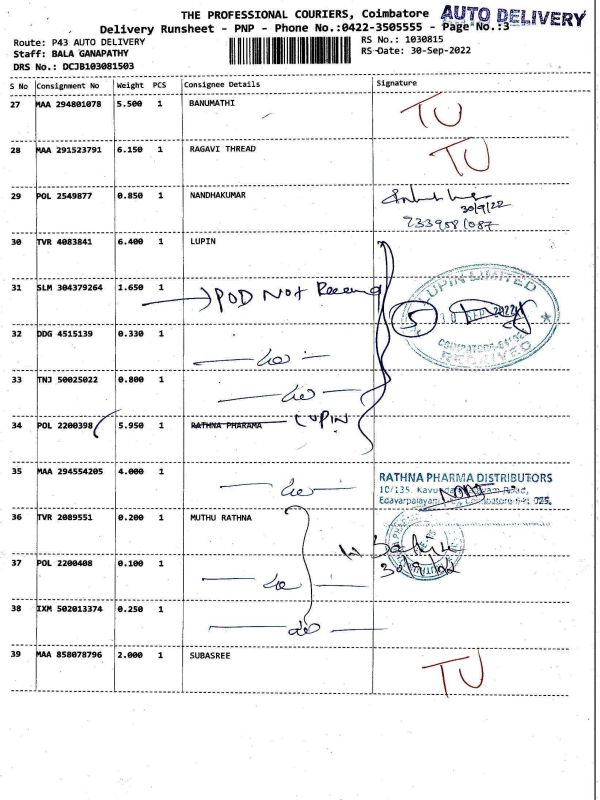 THE PROFESSIONAL COURIERS, Coimbatore
AUTO DELIVERY
Delivery Runsheet - PNP - Phone No.:0422-3505555 - Page No.:3
Route: P43 AUTO DELIVERY
RS No.: 1030815
Staff: BALA GANAPATHY
RS Date: 30-Sep-2022
DRS No.: DCJB103081503
S No Consignment No Weight PCS Consignee Details Signature
27 MAA 294801078 5.500 1 BANUMATHI TU
28 MAA 291523791 6.150 1 RAGAVI THREAD TU
29 POL 2549877 0.850 1 NANDHAKUMAR
30/9/22
30 TVR 4083841 6.400 1 LUPIN
31 SLM 304379264 1.650 1
POD Not
LUPIN LIMITED
5
RECEIVED
32 DDG 4515139 0.330 1
33 TNJ 50025022 0.800 1
34 POL 2200398 5.950 1 RATHNA PHARAMA LUPIN
35 MAA 294554205 4.000 1
RATHNA PHARMA DISTRIBUTORS
10/135, Road,
Edayarpalayam, Coimbatore-641 025.
36 TVR 2089551 0.200 1 MUTHU RATHNA
37 POL 2200408 0.100 1
30/9/22
38 IXM 502013374 0.250 1
39 MAA 858078796 2.000 1 SUBASREE TU